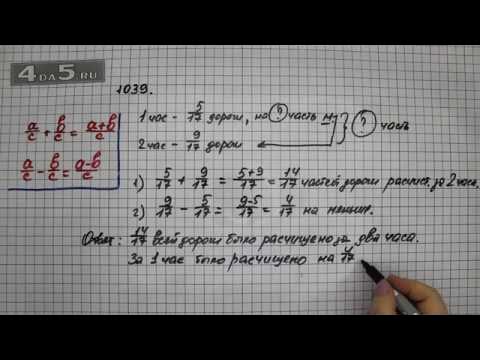 4DA5.RU
1039.
a/c + b/c = a+b/c
a/c - b/c = a-b/c
1 час - 5/17 дороги, на ? часть м
2 час - 9/17 дороги
? часть
1) 5/17 + 9/17 = 5+9/17 = 14/17 частей дороги расчист. за 2 часа.
2) 9/17 - 5/17 = 9-5/17 = 4/17 на меньше.
Ответ: 14/17 всей дороги было расчищено за два часа.
За 1 час было расчищено на 4/17